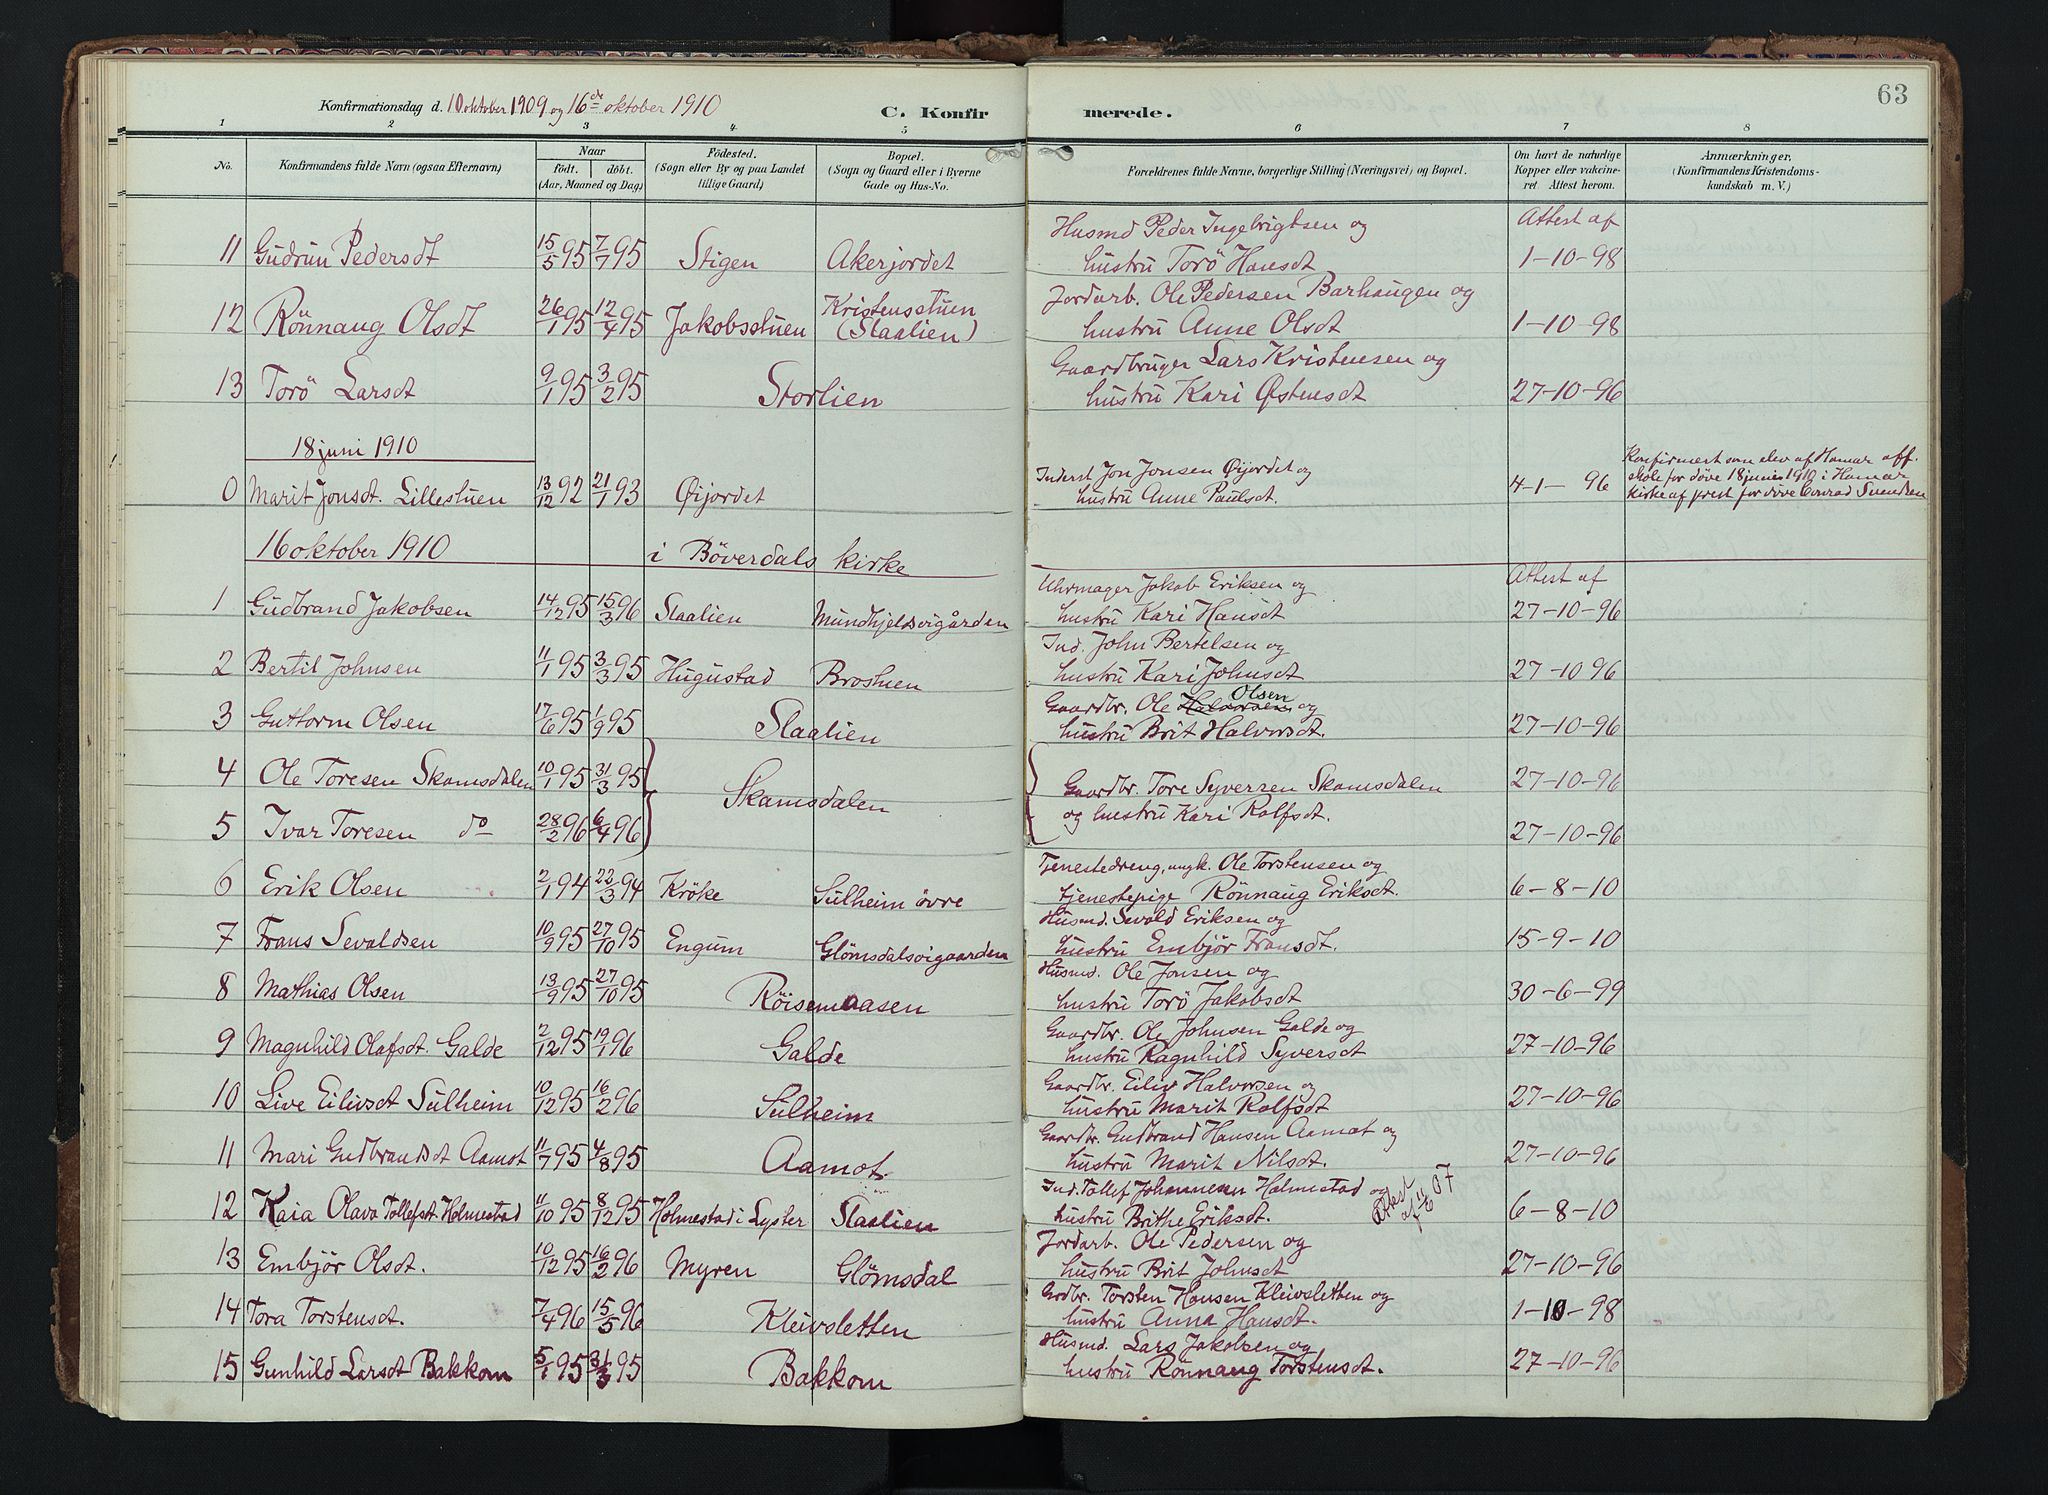 Konfirmationsdag d. 10 oktober 1909 og 16de oktober 1910
C. Konfirmerede.
63
1 2 3 4 5 6 7 8
No.
Konfirmandens fulde Navn (ogsaa Efternavn)
Naar
født. døbt.
(Aar, Maaned og Dag)
Fødested.
(Sogn eller By og paa Landet
tillige Gaard)
Bopæl.
(Sogn og Gaard eller i Byerne
Gade og Hus-No.
Forældrenes fulde Navne, borgerlige Stilling (Næringsvei) og Bopæl.
Om havt de naturlige
Kopper eller vakcine-
ret. Attest herom.
Anmærkninger.
(Konfirmandens Kristendoms-
kundskab m. V.)
Husmd Peder Ingebrigtsen og Attest af
11 Gudrun Pedersdt 15/5 95 7/7 95 Stigen Akerjordet hustru Torö Hansdt 1-10-98
Kristensstuen Jordarb. Ole Pedersen Barhaugen og
12 Rönnaug Olsdt 26/1 95 12/4 95 Jakobsstuen (Slaalien) hustru Anne Olsdt 1-10-98
Gaardbruger Lars Kristensen og
13 Torö Larsdt 9/1 95 3/2 95 Storlien hustru Kari Østensdt 27-10-96
18 juni 1910
Inderst Jon Jonsen Øijordet og
0 Marit Jonsdt. Lillestuen 13/12 92 21/1 93 Øijordet hustru Anne Paulsdt. 4-1-96
Konfirmert som elev af Hamar off.
skole for döve 18 juni 1910 i Hamar
kirke af prest for döve Conrad Svendsen
16 oktober 1910 i Böverdals kirke
Uhrmager Jakob Eriksen og Attest af
1 Gudbrand Jakobsen 14/12 95 15/3 96 Slaalien Mundhjeldsvigården hustru Kari Hansdt 27-10-96
Ind. John Bertelsen og
2 Bertil Johnsen 11/1 95 3/3 95 Hugustad Brostuen hustru Kari Johnsdt 27-10-96
Olsen
Gaardbr. Ole Halvorsen og
3 Guttorm Olsen 17/6 95 1/9 95 Slaalien hustru Brit Halvorsdt. 27-10-96
4 Ole Toresen Skamsdalen 10/1 95 31/3 95 Skamsdalen Gaardbr. Tore Syversen Skamsdalen 27-10-96
og hustru Kari Rolfsdt.
5 Ivar Toresen do 28/2 96 6/4 96 27-10-96
Tjenestedreng, ungk. Ole Torstensen og
6 Erik Olsen 2/1 94 22/3 94 Kröke Sulheim övre tjenestepige Rönnaug Eriksdt. 6-8-10
Husmd. Sevald Eriksen og
7 Frans Sevaldsen 10/9 95 27/10 95 Engum Glömsdalsvigaarden hustru Embjör Fransdt. 15-9-10
Husmd. Ole Jonsen og
8 Mathias Olsen 13/9 95 27/10 95 Röisemoasen hustru Torö Jakobsdt 30-6-99
Gaardbr. Ole Johnsen Galde og
9 Magnhild Olafsdt. Galde 2/12 95 19/1 96 Galde hustru Ragnhild Syversdt 27-10-96
Gaardbr. Eiliv Halvorsen og
10 Live Eilivsdt Sulheim 10/12 95 16/2 96 Sulheim hustru Marit Rolfsdt 27-10-96
Gaardbr. Gudbrand Hansen Aamot og
11 Mari Gudbrandsdt Aamot 11/7 95 4/8 95 Aamot. hustru Marit Nilsdt. 27-10-96
Ind. Tollef Johannesen Holmestad og Attest af 11/6 07
12 Kaia Olava Tollefsdt Holmestad 11/10 95 8/12 95 Holmestad i Lyster Slaalien hustru Brithe Eriksdt. 6-8-10
Jordarb. Ole Pedersen og
13 Embjör Olsdt. 10/12 95 16/2 96 Myren Glömsdal hustru Brit Johnsdt 27-10-96
Grdbr. Torsten Hansen Kleivsletten og
14 Tora Torstensdt. 7/4 96 15/5 96 Kleivsletten hustru Anna Hansdt. 1-10-98
Husmd. Lars Jakobsen og
15 Gunhild Larsdt Bakkom 5/1 95 31/3 95 Bakkom hustru Rönnaug Torstensdt. 27-10-96